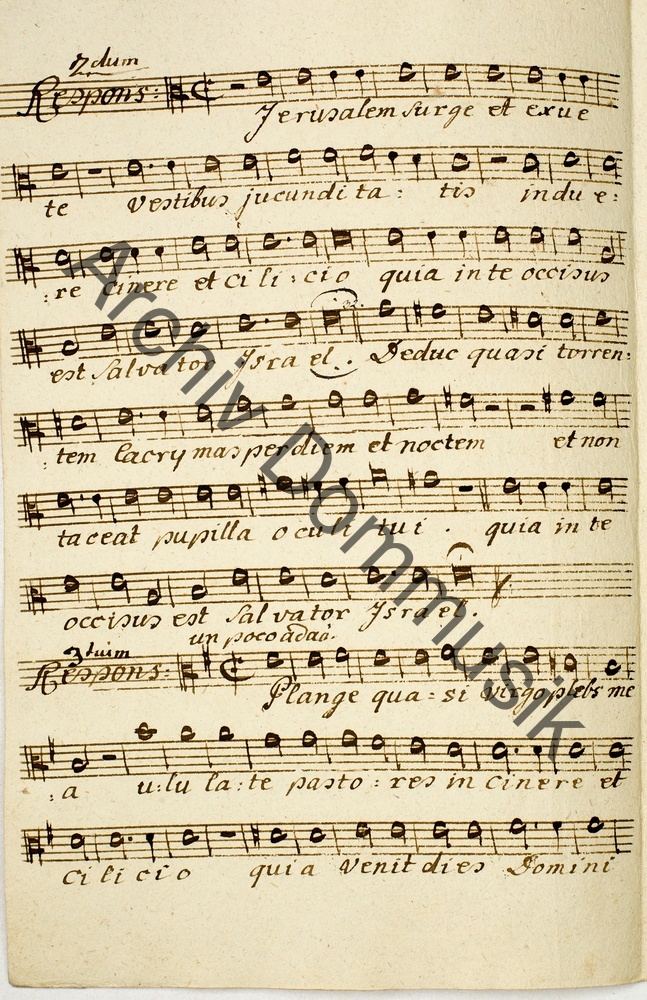 2dum
Respons:
Jerusalem surge et exue
te vestibus jucundita: tis indu e:
:re cinere et ci li: cio quia in te occisus
est Salvator Isra el. Deduc quasi torren:
:tem lacrymas per diem et noctem et non
taceat pupilla oculi tui. quia in te
occisus est Salvator Israel.
un poco adag:
3tium
Respons:
Plange qua: si virgo plebs me
:a u:lu la:te pasto: res in cinere et
ci li cio quia Venit dies Domini
Archiv Dommusik